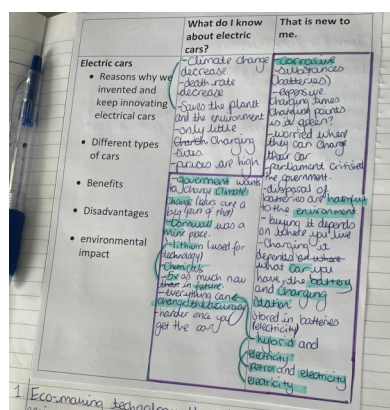 What do I know
about electric
cars?
That is new to
me.
Electric cars
• Reasons why we
invented and
keep innovating
electrical cars
• Different types
of cars
• Benefits
• Disadvantages
• environmental
impact
-Climate change
decrease
-death rate
decrease
-Saves the planet
and the environment
-only little
charging
sites.
-prices are high
-government wants
to change climate
change (cars are a
big part of that)
-Cornwall was a
mine place.
-lithium (used for
technology)
-Chemicals
-5x as much now
than in future.
-everything can
change the accuracy
-harder once you
get the car
-Corrosive
-substances
(batteries)
-expensive.
charging times
Charging points
is it green?
-worried where
they can charge
their car
-parliament critised
the government.
-disposal of
batteries are harmful
to the environment
-buying it depends
on where you live
-Charging it
depends
what car you
have, the battery
and charging
station
Stored in batteries
(electricity)
-hybrid and
electricity
-petrol and electricity
electricity
1. Eco-making technology